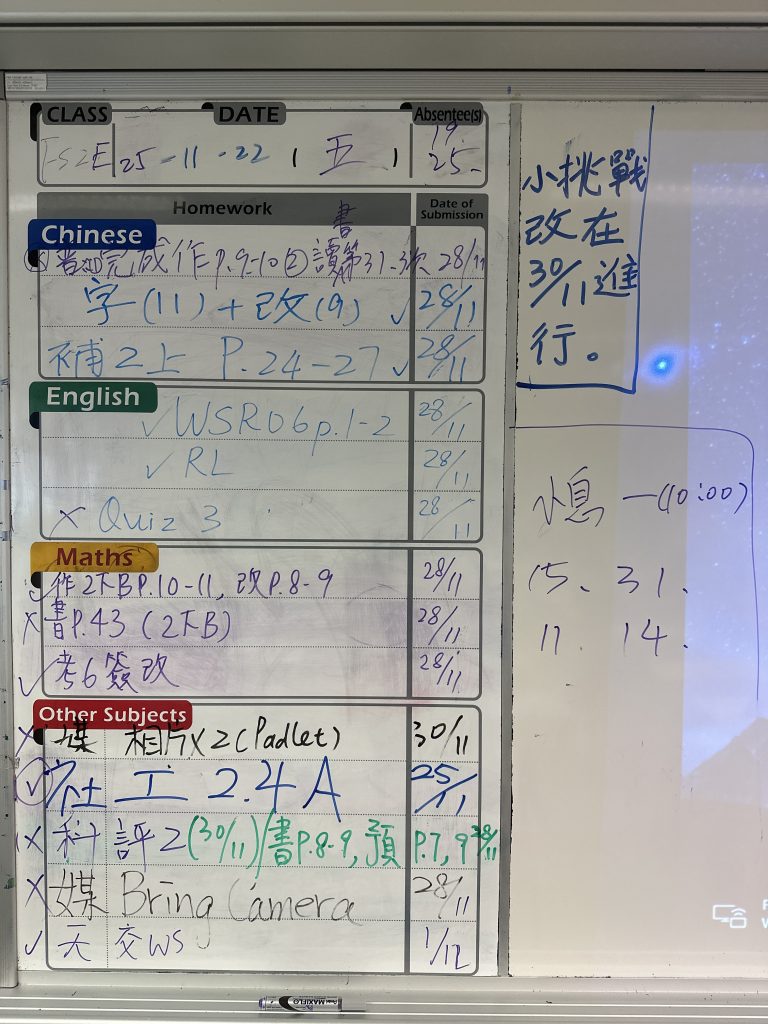 CLASS DATE Absentee(s)
2E 25-11-22 (五) 19.
25.
Homework Date of Submission
書
Chinese
完成作P.9-10 ② 讀第31-3次 28/11
字(11)+改(9) ✓ 28/11
補2上 P.24-27 ✓ 28/11
English
✓ WSR06 p.1-2 28/11
✓ RL 28/11
× Quiz 3 28/11
Maths
✓ 作2下B P.10-11, 改P.8-9 28/11
× 書P.43 (2下B) 28/11
✓ 考6簽改 28/11
Other Subjects
× 媒 相片X2 (Padlet) 30/11
✓ 社 工 2.4A 25/11
× 科 評2 (30/11)/書P.8-9, 預 P.7, 9 28/11
× 媒 Bring Camera 28/11
✓ 天 交WS 1/12
小挑戰
改在
30/11進
行。
小息 一(10:00)
15、31、
11、14、
PENTEL MAXIFLO